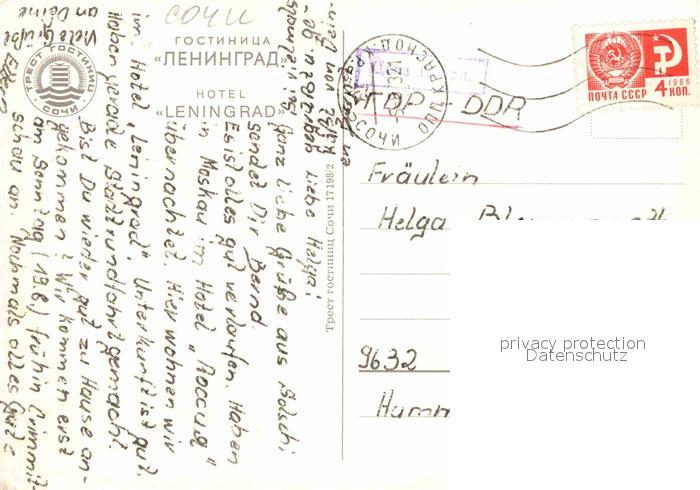 СОЧИ
ГОСТИНИЦА
"ЛЕНИНГРАД"
HOTEL
"LENINGRAD"
ТРЕСТ ГОСТИНИЦ
СОЧИ
Liebe Helga!
Ganz liebe Grüße aus Sotschi
sendet Dir Bernd.
Es ist alles gut verlaufen. Haben
in Moskau im Hotel „Россия"
übernachtet. Hier wohnen wir
im Hotel „Leningrad". Unterkunft ist gut.
Haben gerade Stadtrundfahrt gemacht.
Bist Du wieder gut zu Hause an-
gekommen? Wir kommen erst
am Sonntag (19.8.) früh in Crimmit-
schau an. Nochmals alles Gute
Viele Grüße
an Deine
Eltern
Трест гостиниц Сочи 17198/2
КРАСНОД.
ГДР - DDR
1966
ПОЧТА СССР
4 КОП.
Fräulein
Helga
9632
privacy protection
Datenschutz